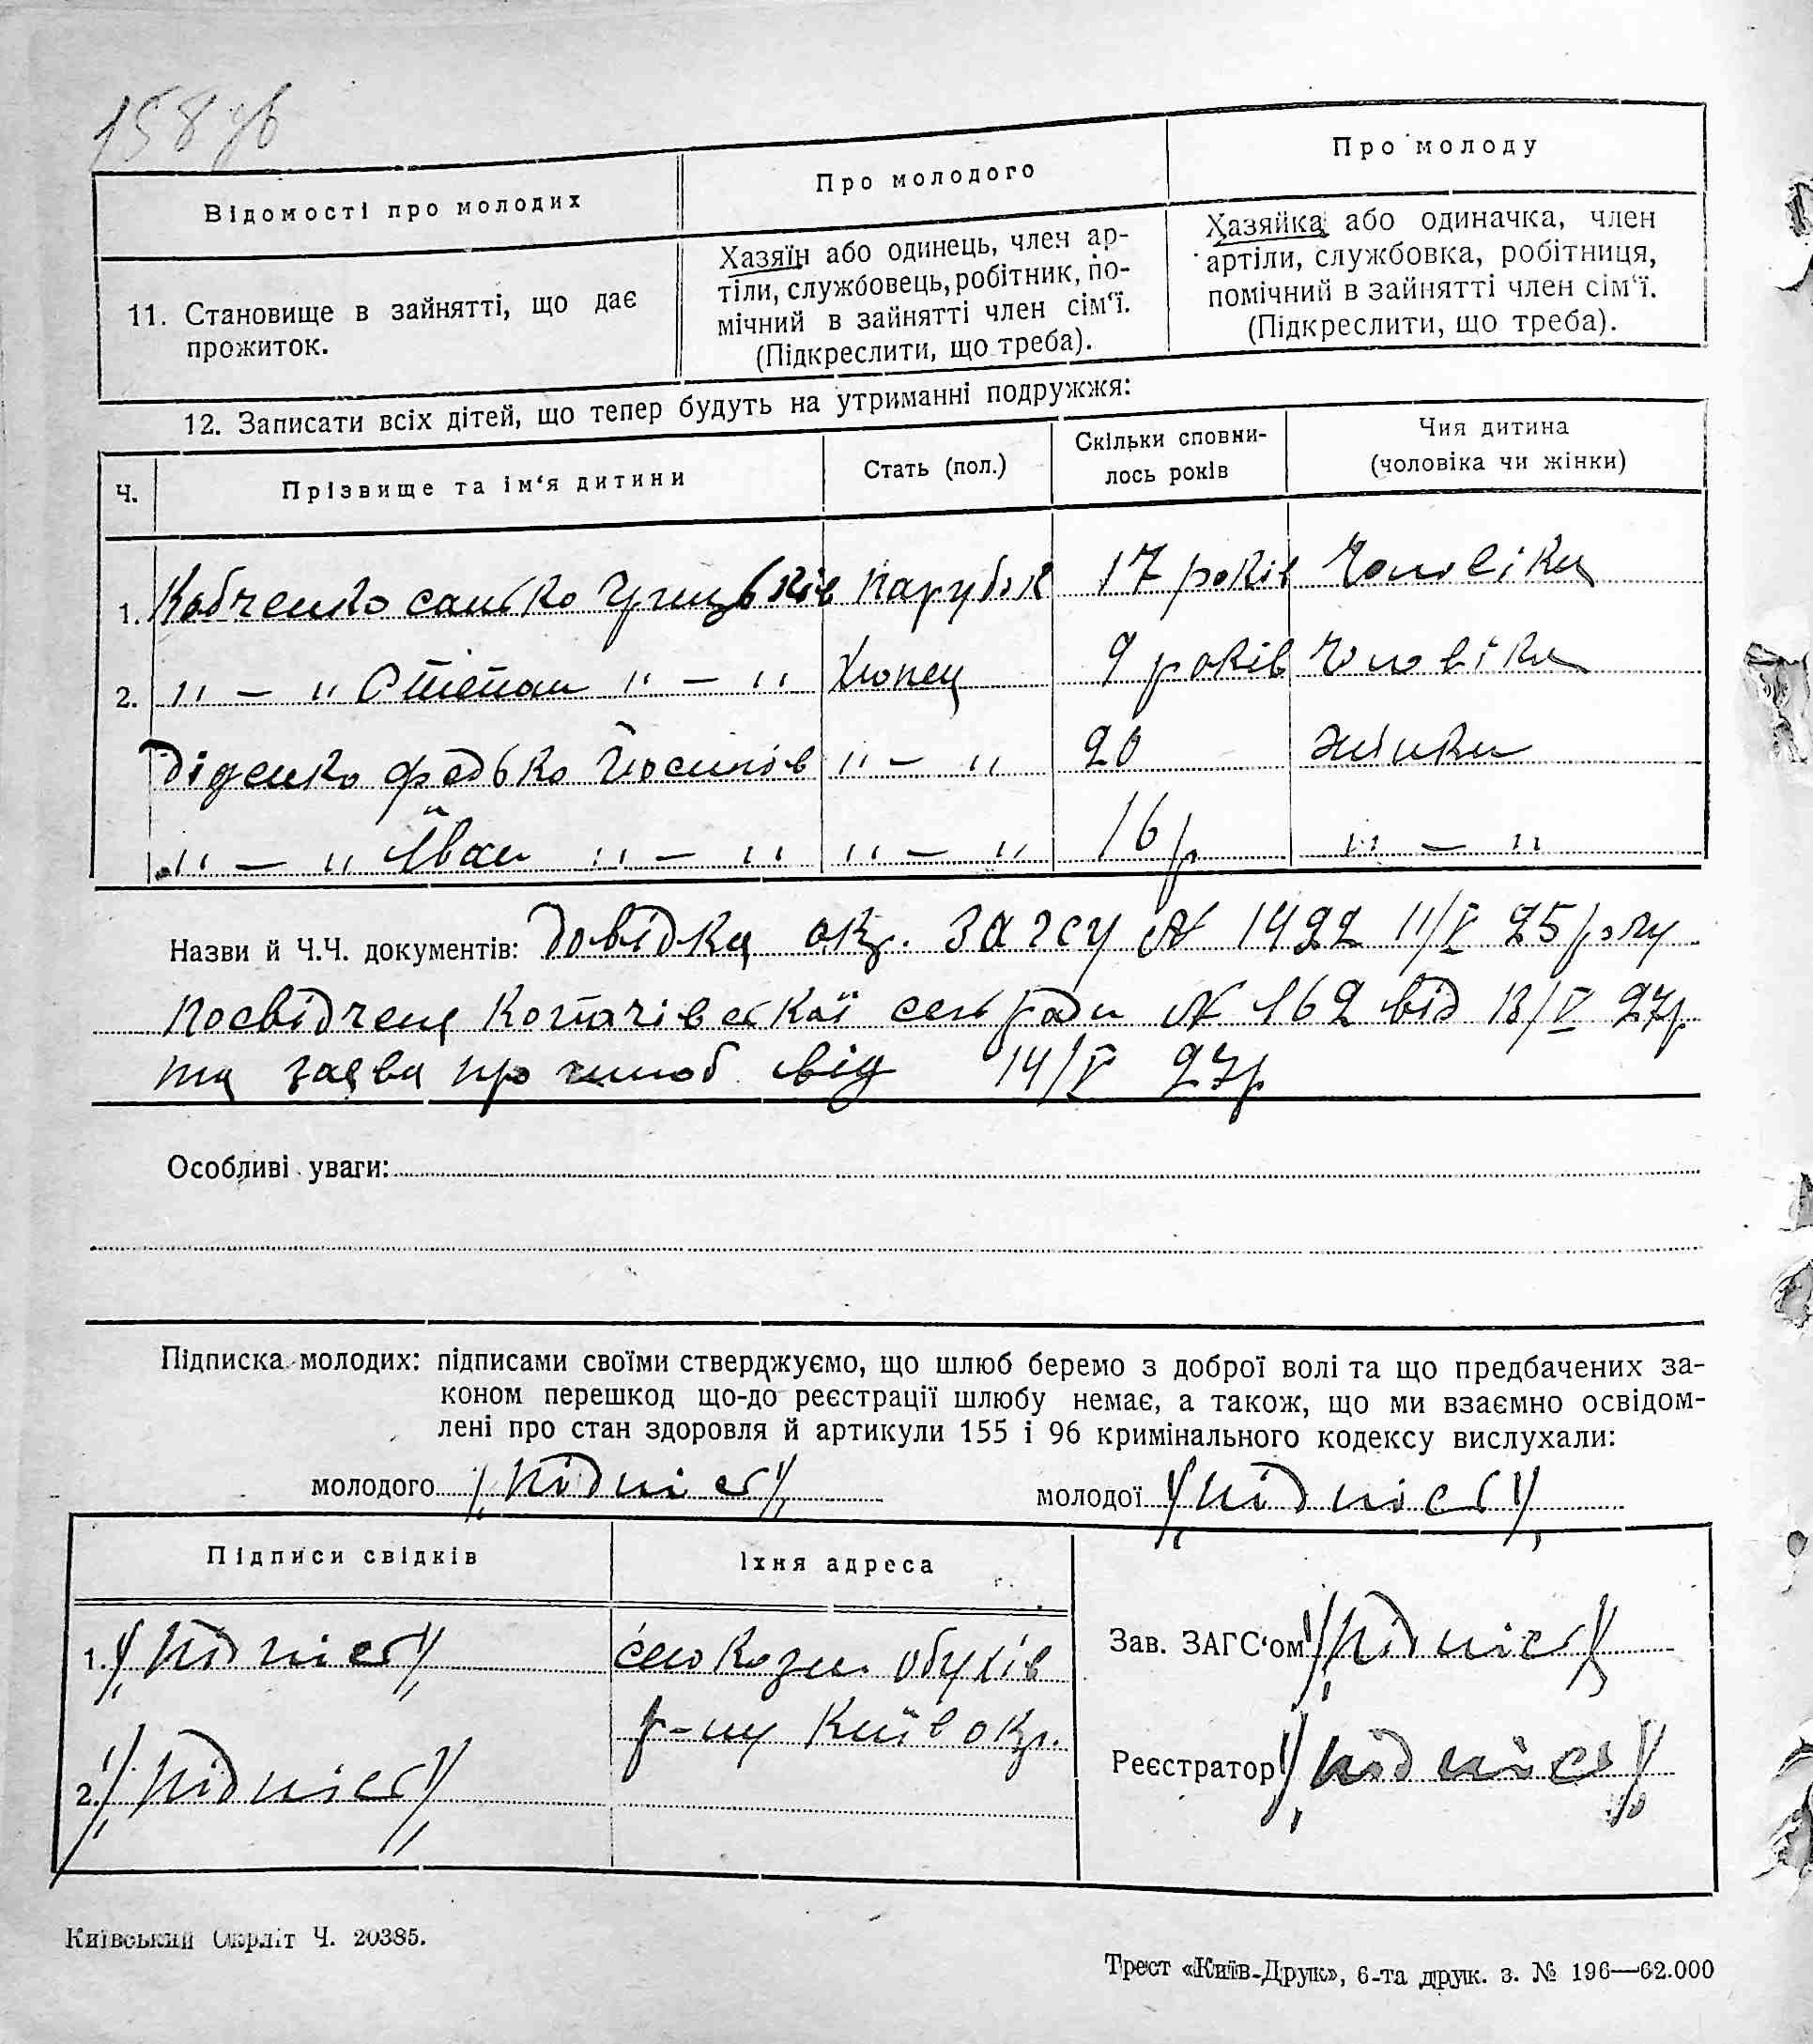 158 зв
Відомості про молодих
Про молодого
Про молоду
11. Становище в зайнятті, що дає
прожиток.
Хазяїн або одинець, член ар-
тіли, службовець, робітник, по-
мічний в зайнятті член сім‘ї.
(Підкреслити, що треба).
Хазяйка або одиначка, член
артіли, службовка, робітниця,
помічний в зайнятті член сім‘ї.
(Підкреслити, що треба).
12. Записати всіх дітей, що тепер будуть на утриманні подружжя:
Ч.
Прізвище та ім‘я дитини
Стать (пол.)
Скільки сповни-
лось років
Чия дитина
(чоловіка чи жінки)
1. Кобченко санько Грицьків парубок 17 років Чоловіка
2. " — " Степан " — " Хлопец 9 років Чоловіка
Діденко федько Йосипів " — " 20 жінки
" — " Йван " — " " — " 16 р " — "
Назви й Ч.Ч. документів: Довідка окр. загсу № 1422 11/V 25 року
посвідченя Копачівської сель ради № 162 від 13/V 27р
та заява про шлюб від 14/V 27р
Особливі уваги:
Підписка молодих: підписами своїми стверджуємо, що шлюб беремо з доброї волі та що предбачених за-
коном перешкод що-до реєстрації шлюбу немає, а також, що ми взаємно освідом-
лені про стан здоровля й артикули 155 і 96 кримінального кодексу вислухали:
молодого /підпись/
молодої /підпись/
Підписи свідків
Їхня адреса
1. /підпись/
село Козин обухів
р-ну Київ окр.
2. /підпись/
Зав. ЗАГС‘ом /підпись/
Реєстратор /підпись/
Київський Окрліт Ч. 20385.
Трест «Київ-Друк», 6-та друк. з. № 196—62.000